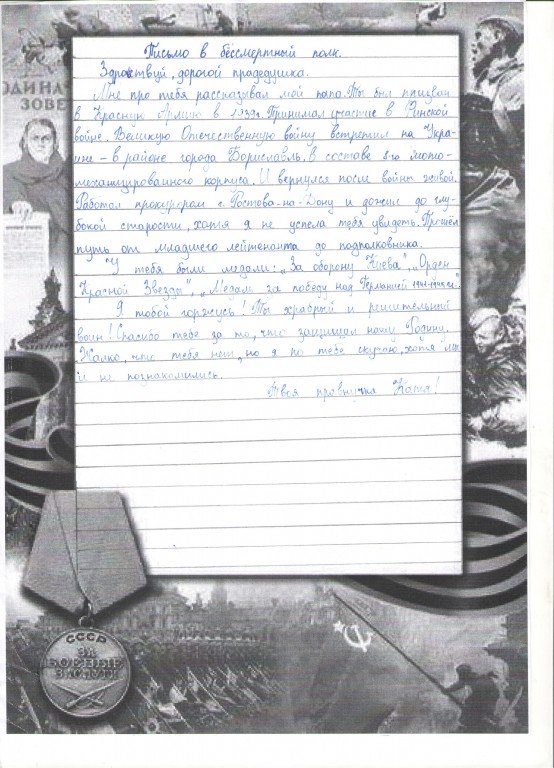 Письмо в бессмертный полк.
Здравствуй, дорогой прадедушка.
Мне про тебя рассказывал мой папа. Ты был призван
в Красную Армию в 1939г. Принимал участие в Финской
войне. Великую Отечественную войну встретил на Укра-
ине – в районе города Бориславль, в составе 8-го мото-
механизированного корпуса. И вернулся после войны живой.
Работал прокурорам г. Ростова-на-Дону и дожил до глу-
бокой старости, хотя я не успела тебя увидеть. Прошёл
путь от младшего лейтенанта до подполковника.
У тебя были медали: „За оборону Киева", „Орден
Красной Звезды", „Медаль за победу над Германией 1941-1945гг."
Я тобой горжусь! Ты храбрый и решительный
воин! Спасибо тебе за то, что защищал нашу Родину.
Жалко, что тебя нет, но я по тебе скучаю, хотя мы
и не познакомились.
Твоя правнучка Катя!
РОДИНА
ЗОВЕ
СССР
ЗА
БОЕВЫЕ
ЗАСЛУГИ